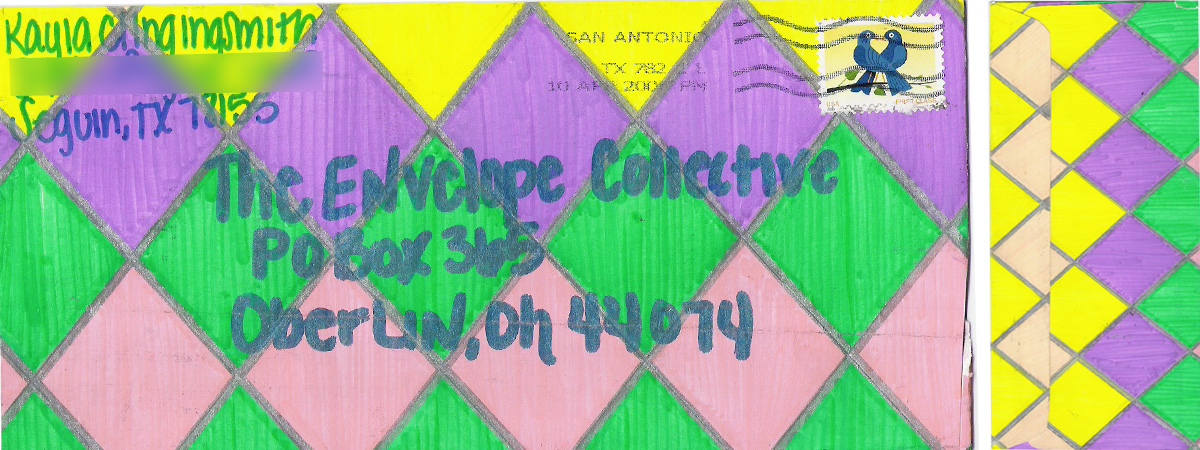 Kayla Clingingsmith
Seguin, TX 78155
SAN ANTONIO
TX 782
10 APR 2008 PM
USA
FIRST-CLASS
The Envelope Collective
PO Box 365
Oberlin, Oh 44074